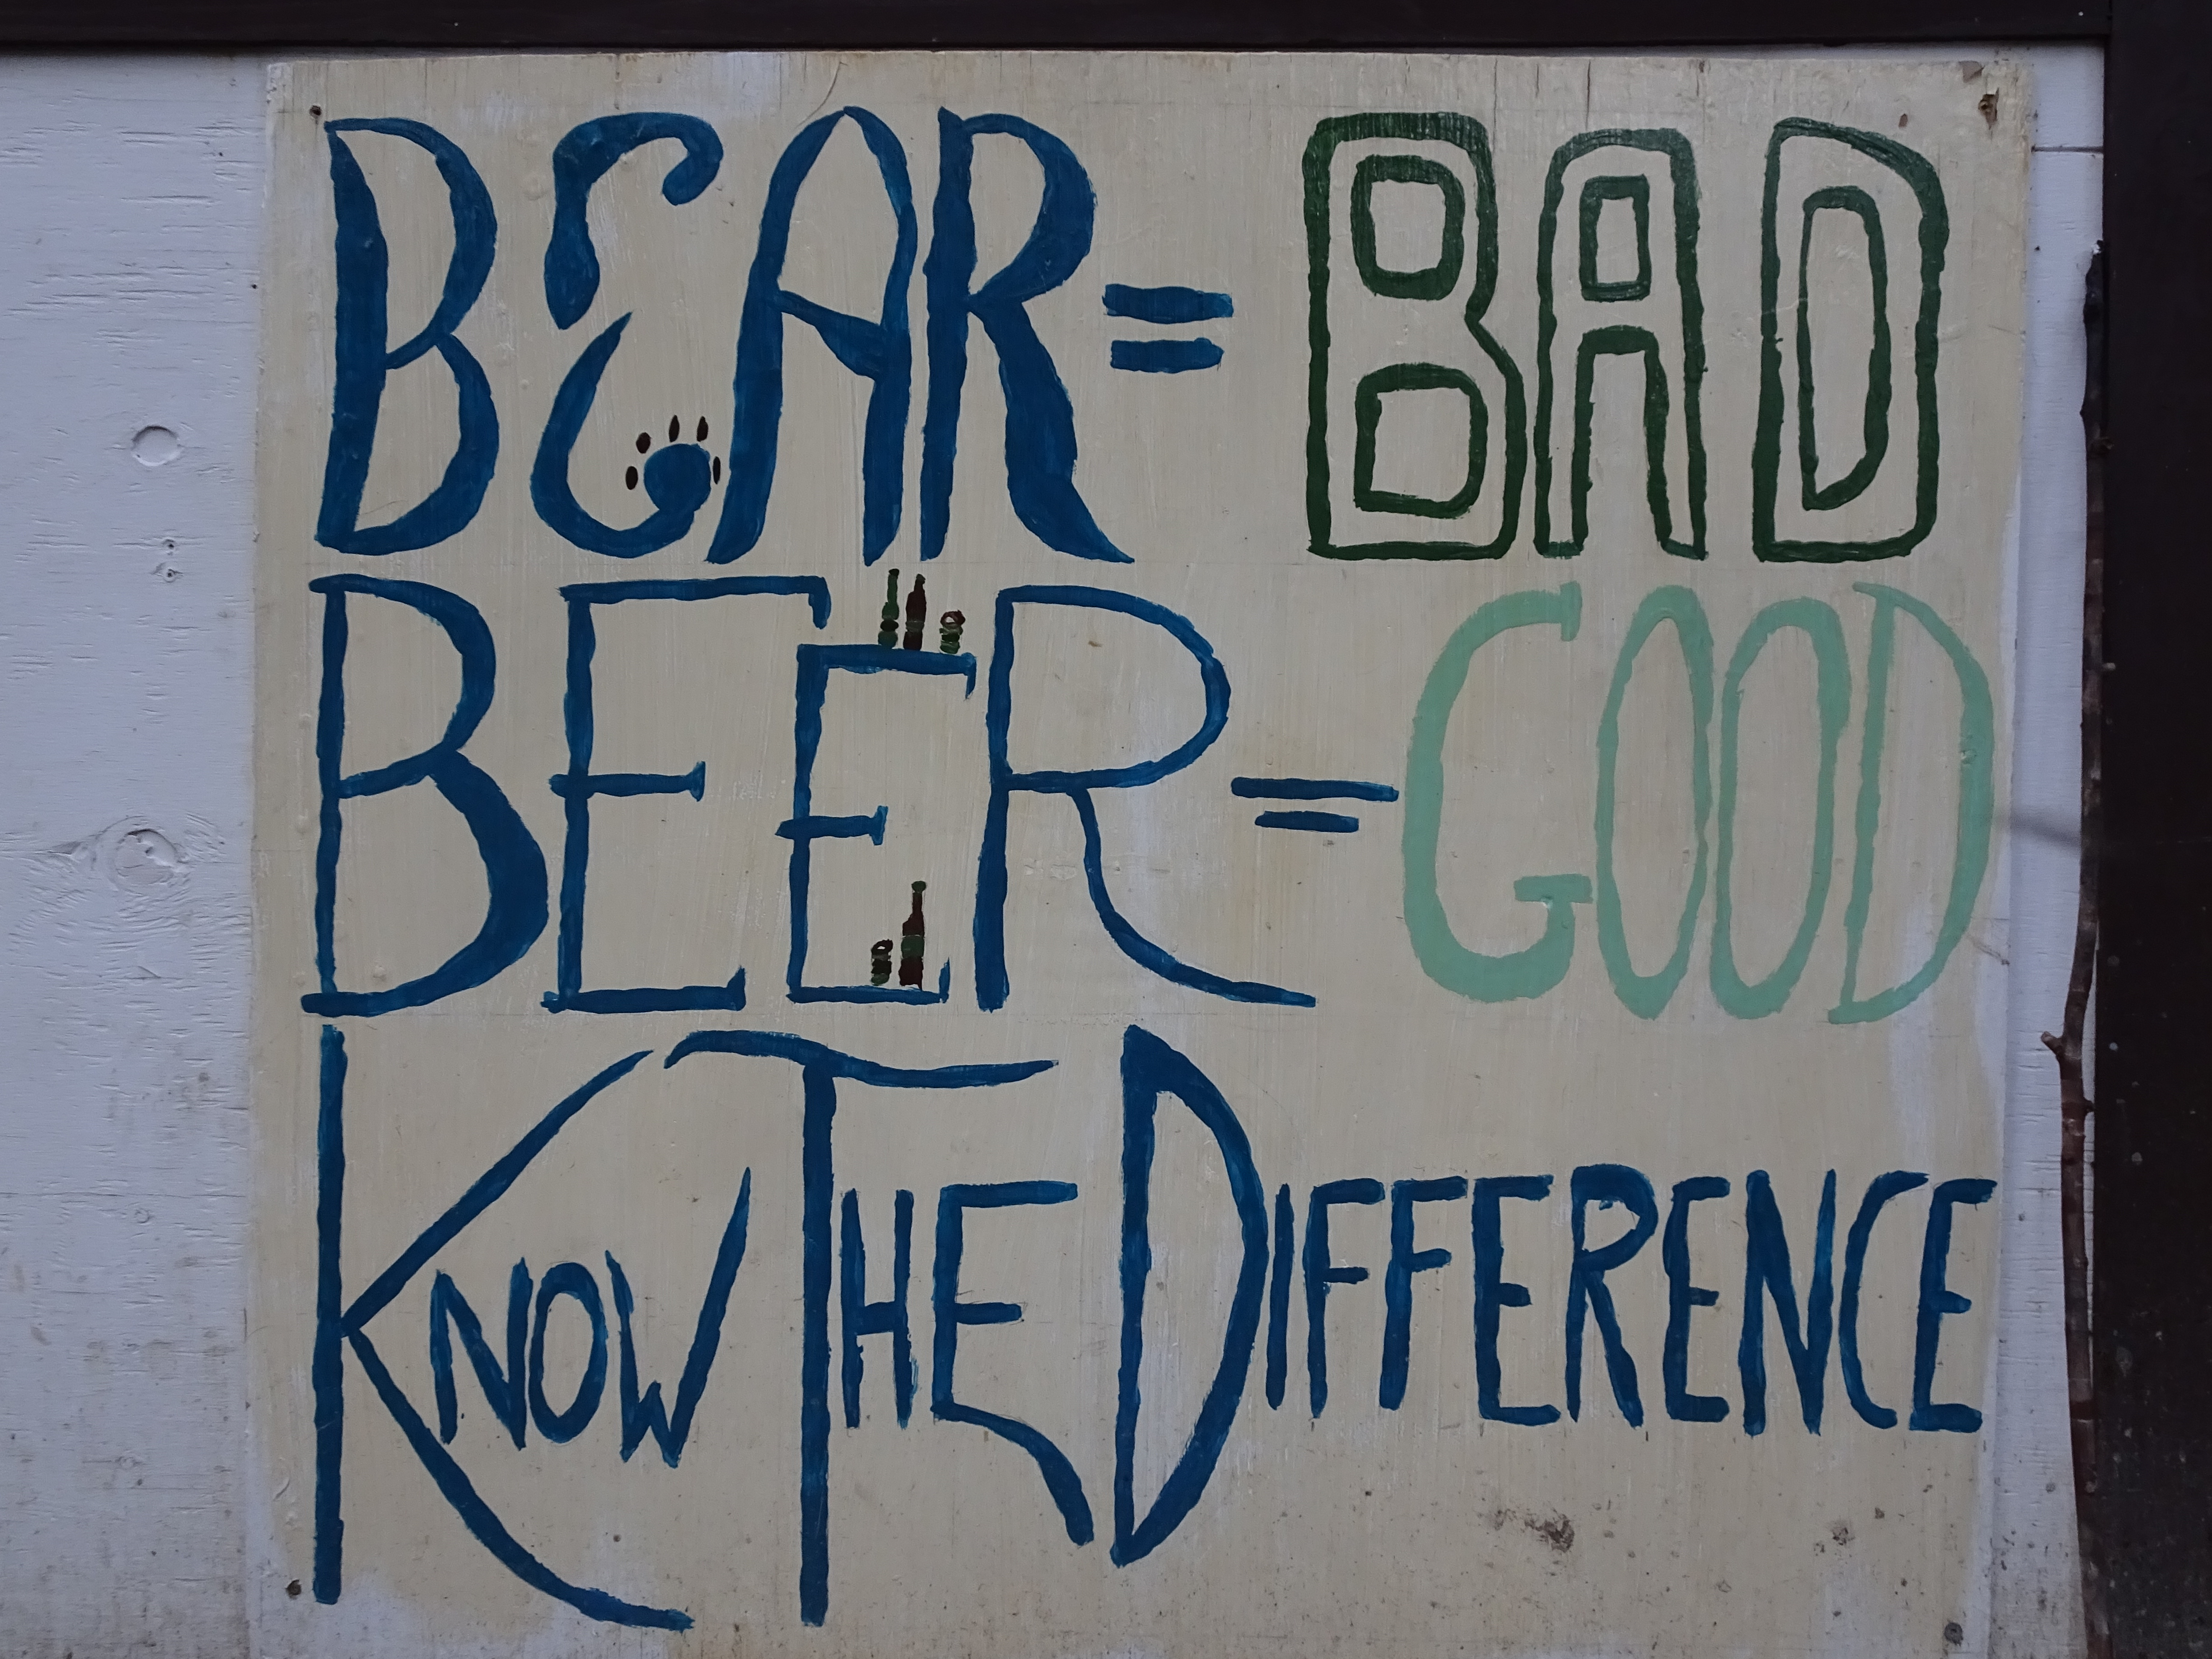 BEAR = BAD
BEER = GOOD
KNOW THE DIFFERENCE